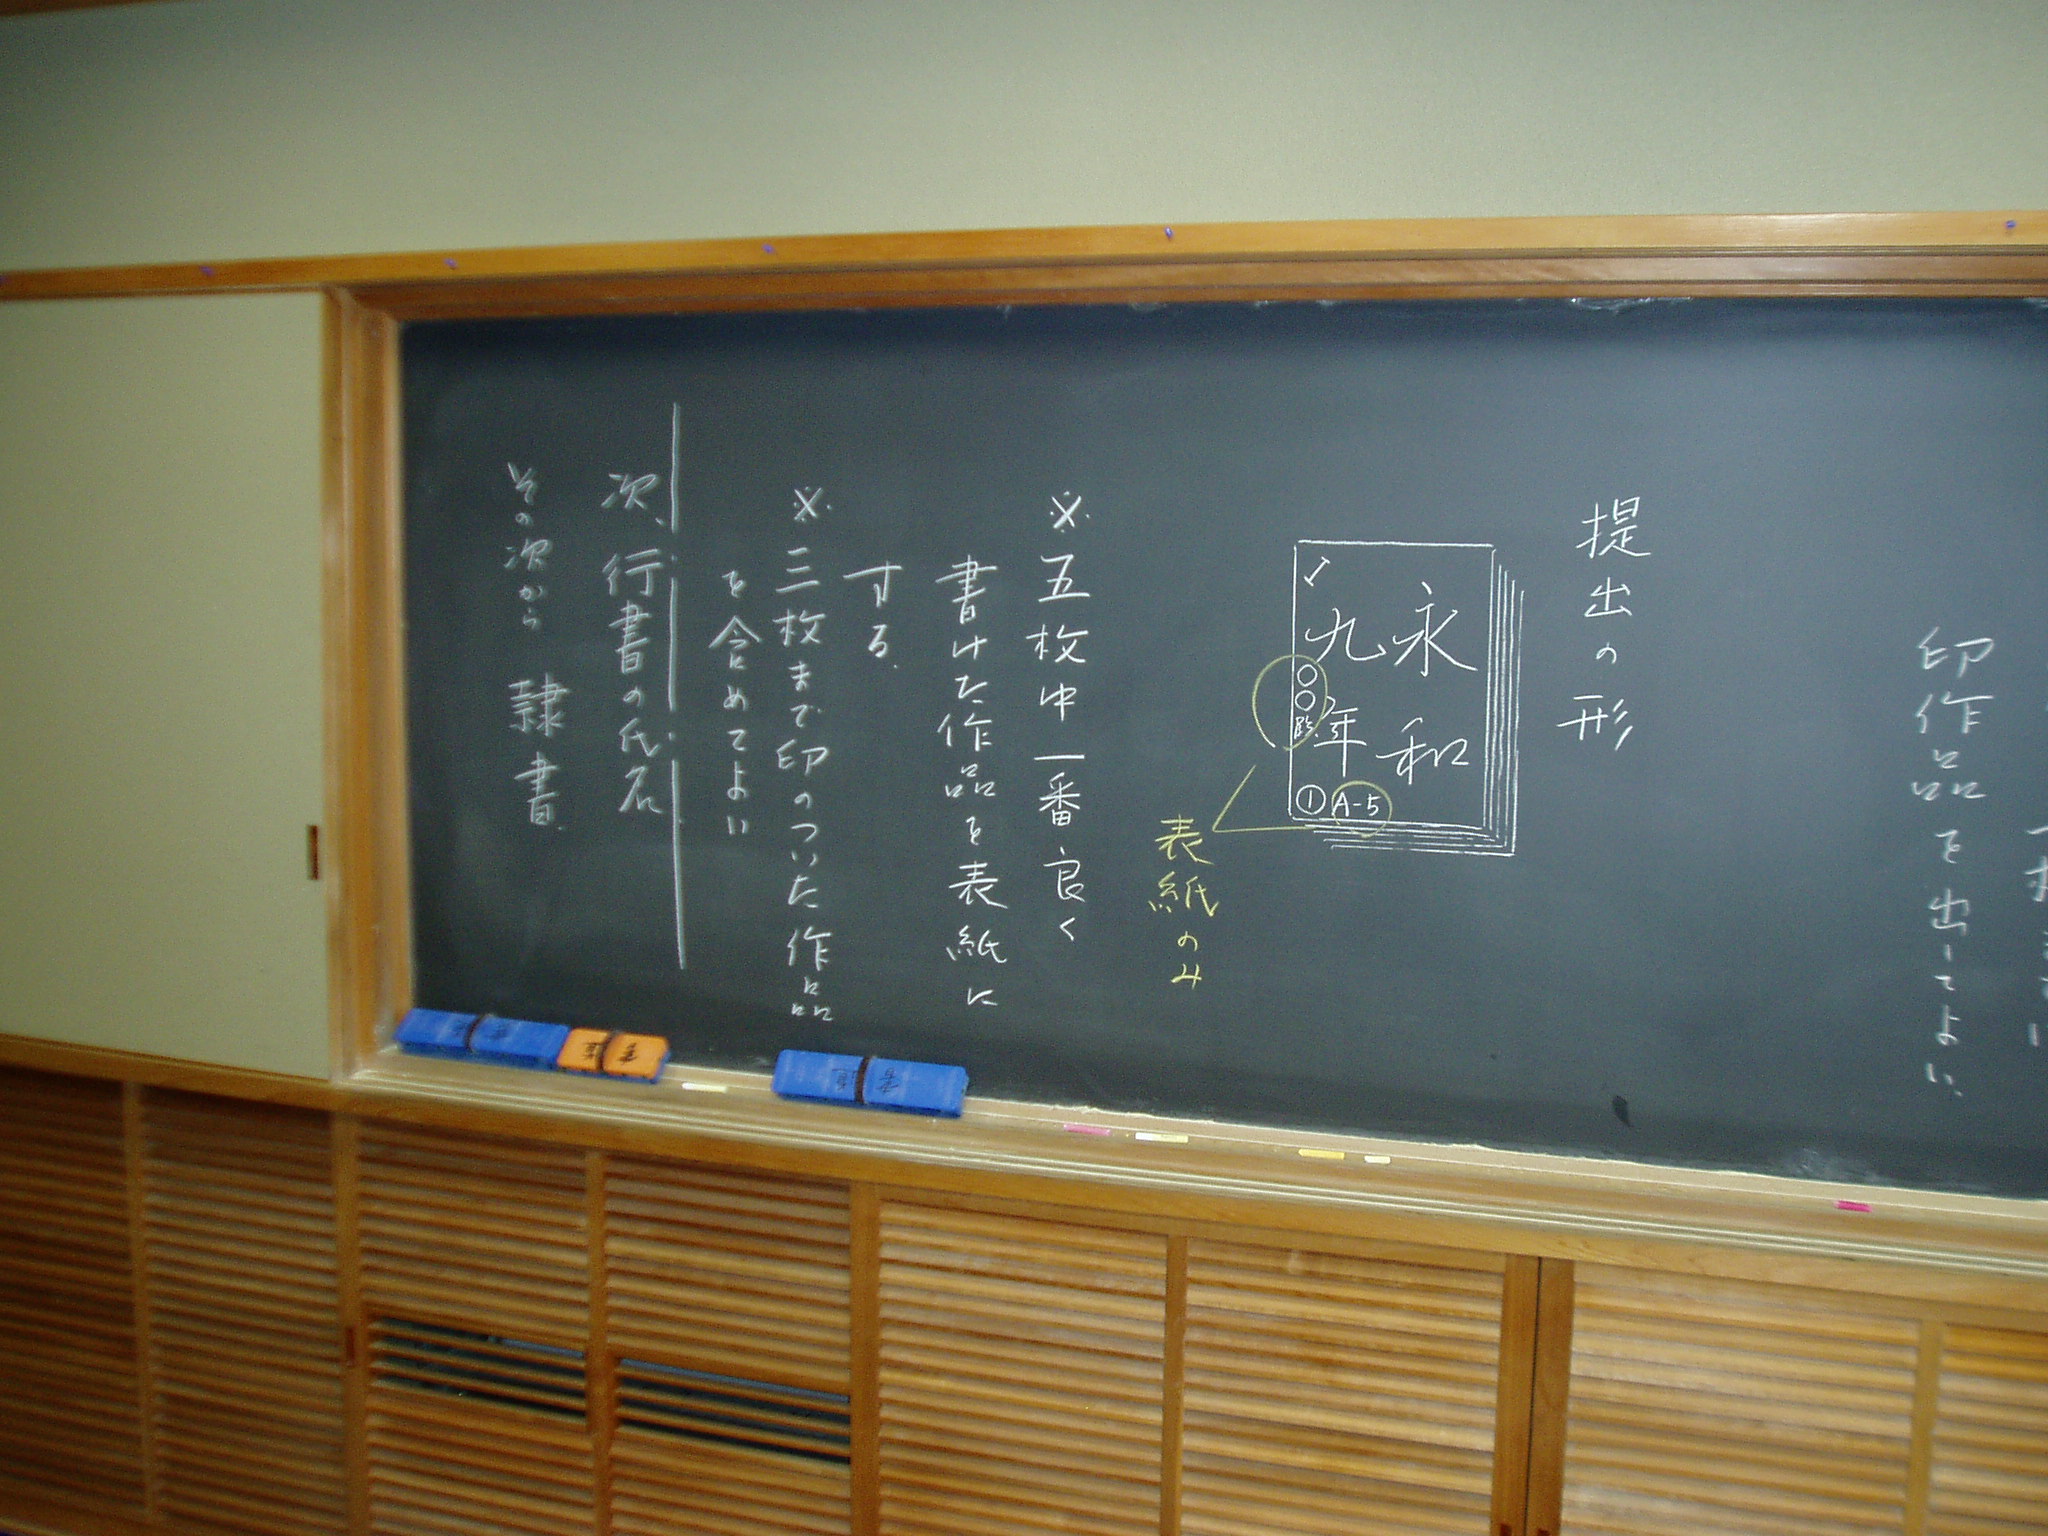 印作品を出してよい、
提出の形
永和
九年
〇〇臨
① A-5
表紙のみ
※五枚中一番良く
書けた作品を表紙に
する。
※三枚まで印のついた作品
を含めてよい
次、行書の氏名
その次から 隷書。